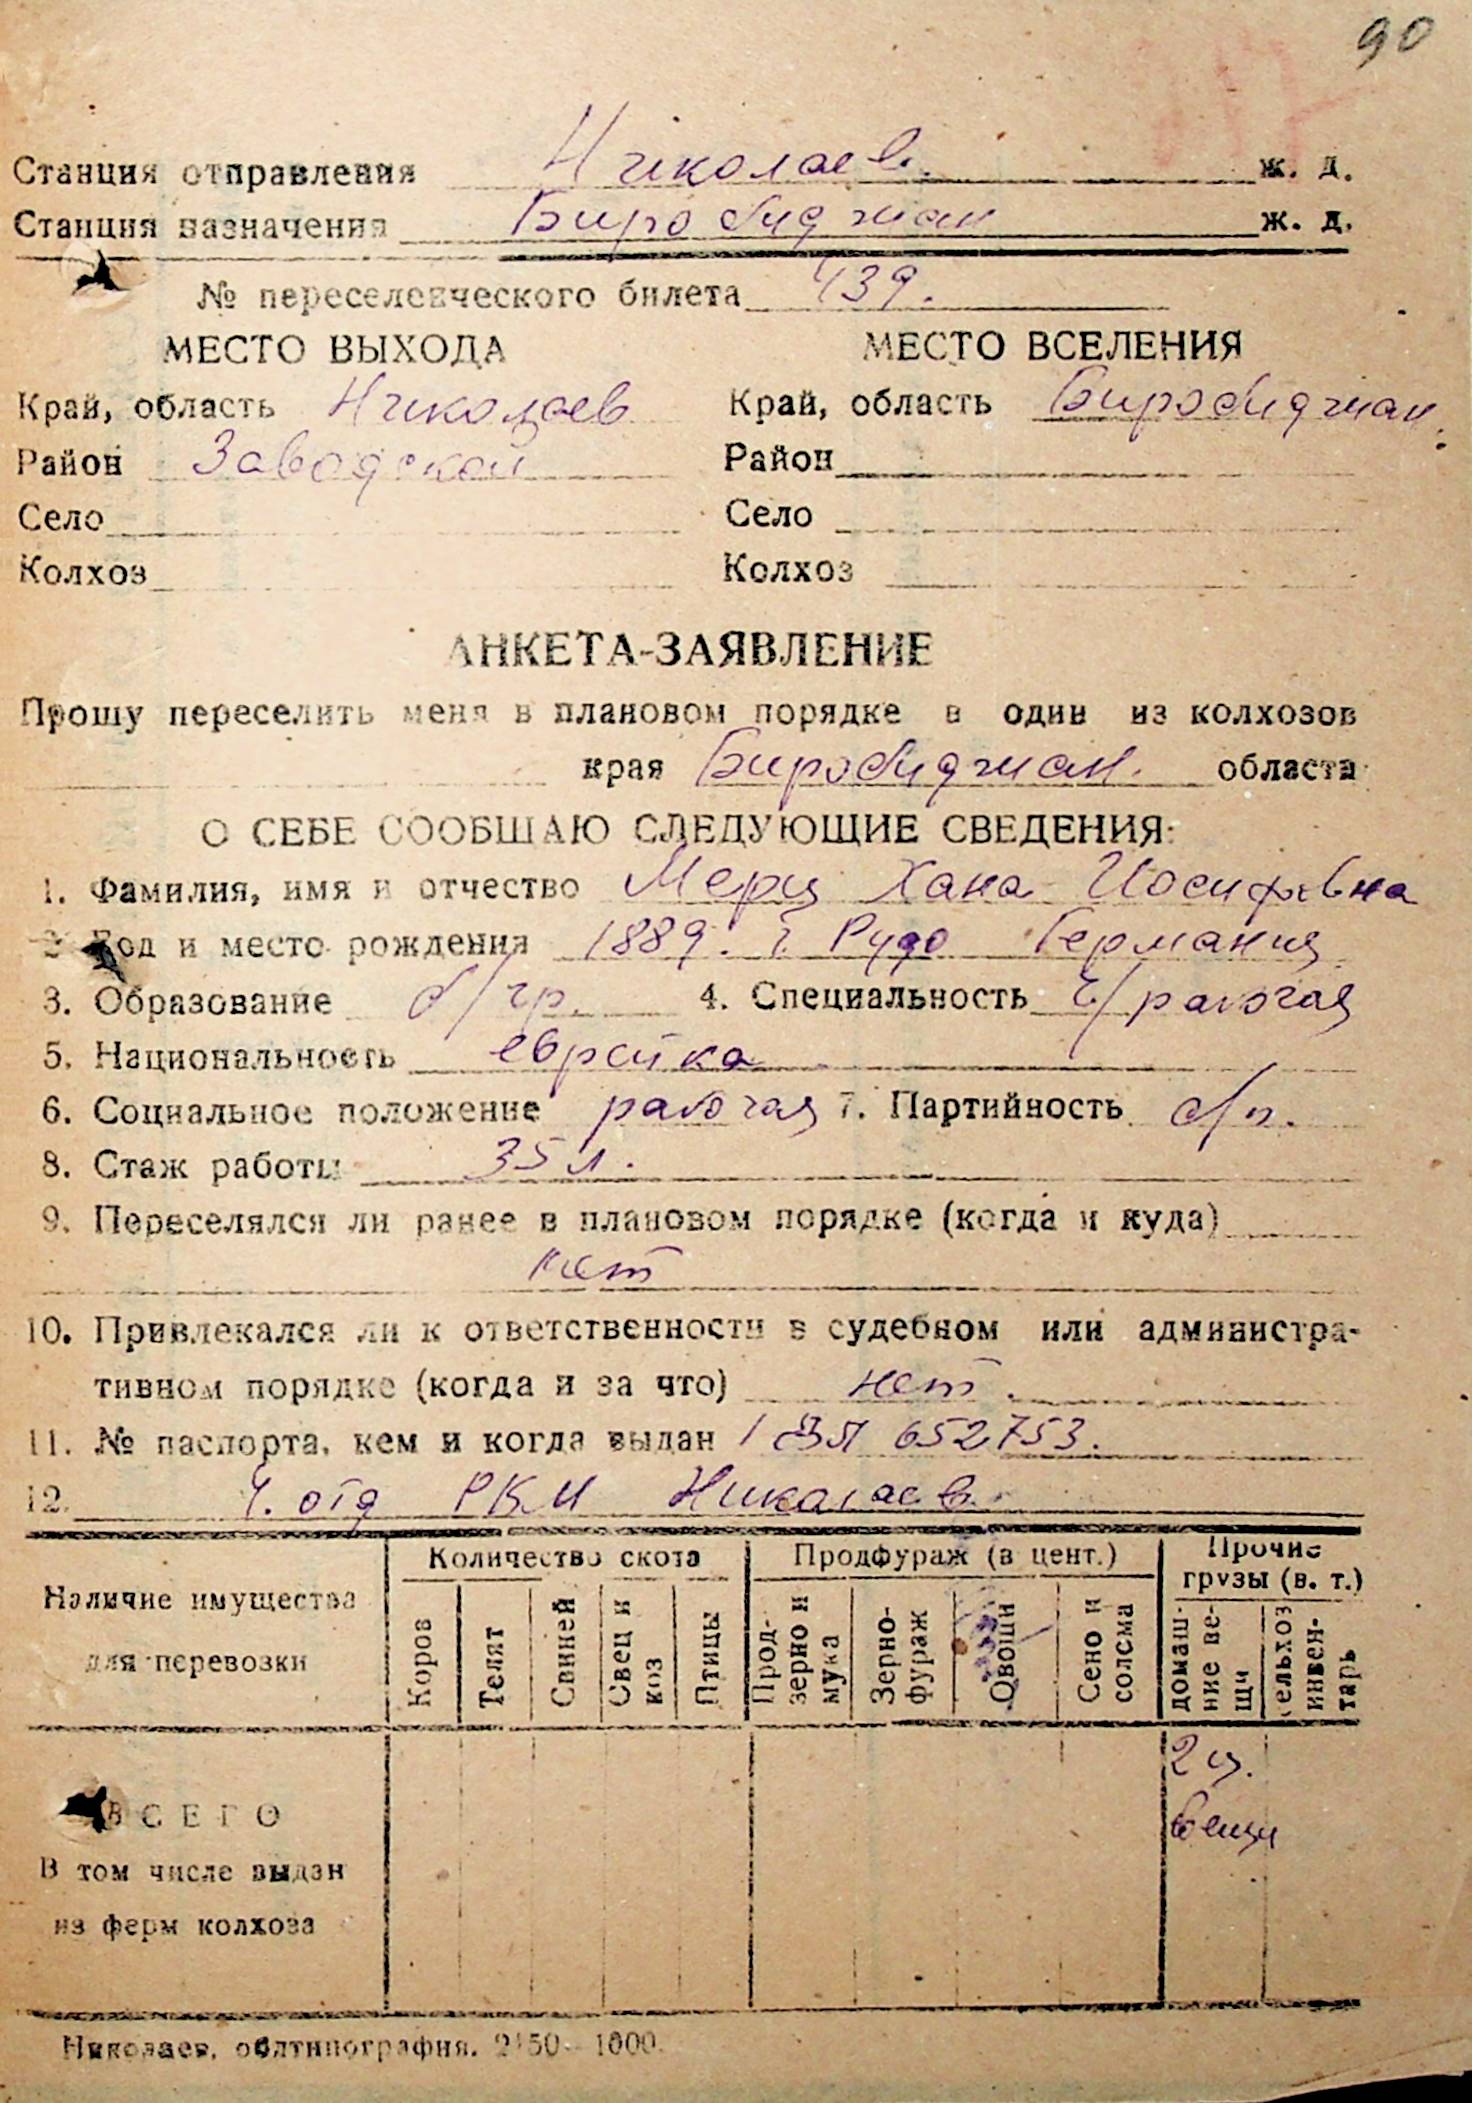 90
Станция отправления Николаев. ж. д.
Станция назначения Биробиджан ж. д.
№ переселенческого билета 439.
МЕСТО ВЫХОДА МЕСТО ВСЕЛЕНИЯ
Край, область Николаев Край, область Биробиджан.
Район Заводской Район
Село Село
Колхоз Колхоз
АНКЕТА-ЗАЯВЛЕНИЕ
Прошу переселить меня в плановом порядке в один из колхозов
края Биробиджан. области
О СЕБЕ СООБЩАЮ СЛЕДУЮЩИЕ СВЕДЕНИЯ:
1. Фамилия, имя и отчество Мерц Хана Иосифовна
2. Год и место рождения 1889. г. Рудо Германия
3. Образование б/гр. 4. Специальность ч/рабочая
5. Национальность еврейка
6. Социальное положение рабочая 7. Партийность б/п.
8. Стаж работы 35 л.
9. Переселялся ли ранее в плановом порядке (когда и куда)
нет
10. Привлекался ли к ответственности в судебном или администра-
тивном порядке (когда и за что) нет.
11. № паспорта, кем и когда выдан 652753.
12. 4. отд РКМ Николаев.
Наличие имущества для перевозки
Количество скота
Продфураж (в цент.)
Прочие грузы (в. т.)
Коров
Телят
Свиней
Свец и коз
Птицы
Прод- зерно и мука
Зерно- фураж
Овощи
Сено и солсма
домаш- ние ве- щи
сельхоз инвен- тарь
2 ц.
вещи
ВСЕГО
В том числе выдан
из ферм колхоза
Николаев, облтипография. 2150—1000.